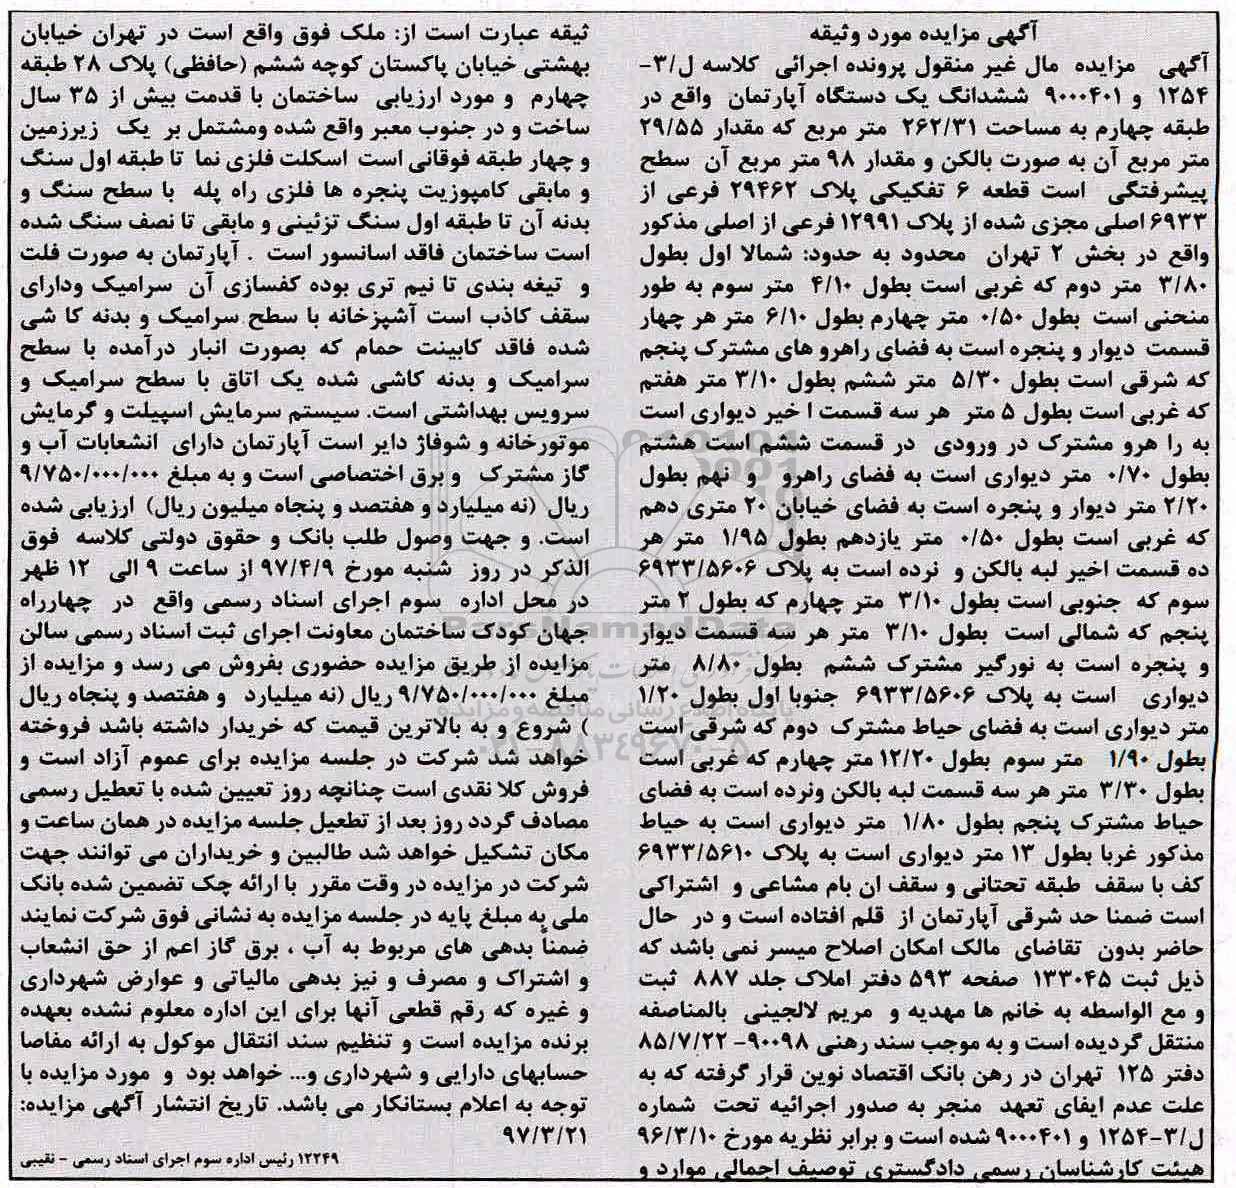 آگهی مزایده مورد وثیقه
آگهی مزایده مال غیر منقول پرونده اجرائی کلاسه ل/۳-
۱۲۵۴ و ۹۰۰۰۴۰۱ ششدانگ یک دستگاه آپارتمان واقع در
طبقه چهارم به مساحت ۲۶۲/۳۱ متر مربع که مقدار ۲۹/۵۵
متر مربع آن به صورت بالکن و مقدار ۹۸ متر مربع آن سطح
پیشرفتگی است قطعه ۶ تفکیکی پلاک ۲۹۴۶۲ فرعی از
۶۹۳۳ اصلی مجزی شده از پلاک ۱۲۹۹۱ فرعی از اصلی مذکور
واقع در بخش ۲ تهران محدود به حدود: شمالا اول بطول
۳/۸۰ متر دوم که غربی است بطول ۴/۱۰ متر سوم به طور
منحنی است بطول ۰/۵۰ متر چهارم بطول ۶/۱۰ متر هر چهار
قسمت دیوار و پنجره است به فضای راهرو های مشترک پنجم
که شرقی است بطول ۵/۳۰ متر ششم بطول ۳/۱۰ متر هفتم
که غربی است بطول ۵ متر هر سه قسمت ا خیر دیواری است
به را هرو مشترک در ورودی در قسمت ششم است هشتم
بطول ۰/۷۰ متر دیواری است به فضای راهرو و نهم بطول
۲/۲۰ متر دیوار و پنجره است به فضای خیابان ۲۰ متری دهم
که غربی است بطول ۰/۵۰ متر یازدهم بطول ۱/۹۵ متر هر
ده قسمت اخیر لبه بالکن و نرده است به پلاک ۶۹۳۳/۵۶۰۶
سوم که جنوبی است بطول ۳/۱۰ متر چهارم که بطول ۲ متر
پنجم که شمالی است بطول ۳/۱۰ متر هر سه قسمت دیوار
و پنجره است به نورگیر مشترک ششم بطول ۸/۸۰ متر
دیواری است به پلاک ۶۹۳۳/۵۶۰۶ جنوبا اول بطول ۱/۲۰
متر دیواری است به فضای حیاط مشترک دوم که شرقی است
بطول ۱/۹۰ متر سوم بطول ۱۲/۲۰ متر چهارم که غربی است
بطول ۳/۳۰ متر هر سه قسمت لبه بالکن ونرده است به فضای
حیاط مشترک پنجم بطول ۱/۸۰ متر دیواری است به حیاط
مذکور غربا بطول ۱۳ متر دیواری است به پلاک ۶۹۳۳/۵۶۱۰
کف با سقف طبقه تحتانی و سقف ان بام مشاعی و اشتراکی
است ضمنا حد شرقی آپارتمان از قلم افتاده است و در حال
حاضر بدون تقاضای مالک امکان اصلاح میسر نمی باشد که
ذیل ثبت ۱۳۳۰۴۵ صفحه ۵۹۳ دفتر املاک جلد ۸۸۷ ثبت
و مع الواسطه به خانم ها مهدیه و مریم لالجینی بالمناصفه
منتقل گردیده است و به موجب سند رهنی ۹۰۰۹۸-۸۵/۷/۲۲
دفتر ۱۲۵ تهران در رهن بانک اقتصاد نوین قرار گرفته که به
علت عدم ایفای تعهد منجر به صدور اجرائیه تحت شماره
ل/۳-۱۲۵۴ و ۹۰۰۰۴۰۱ شده است و برابر نظریه مورخ ۹۶/۳/۱۰
هیئت کارشناسان رسمی دادگستری توصیف اجمالی موارد و
ثیقه عبارت است از: ملک فوق واقع است در تهران خیابان
بهشتی خیابان پاکستان کوچه ششم (حافظی) پلاک ۲۸ طبقه
چهارم و مورد ارزیابی ساختمان با قدمت بیش از ۳۵ سال
ساخت و در جنوب معبر واقع شده ومشتمل بر یک زیرزمین
و چهار طبقه فوقانی است اسکلت فلزی نما تا طبقه اول سنگ
و مابقی کامپوزیت پنجره ها فلزی راه پله با سطح سنگ و
بدنه آن تا طبقه اول سنگ تزئینی و مابقی تا نصف سنگ شده
است ساختمان فاقد اسانسور است . آپارتمان به صورت فلت
و تیغه بندی تا نیم تری بوده کفسازی آن سرامیک ودارای
سقف کاذب است آشپزخانه با سطح سرامیک و بدنه کا شی
شده فاقد کابینت حمام که بصورت انبار درآمده با سطح
سرامیک و بدنه کاشی شده یک اتاق با سطح سرامیک و
سرویس بهداشتی است. سیستم سرمایش اسپیلت و گرمایش
موتورخانه و شوفاژ دایر است آپارتمان دارای انشعابات آب و
گاز مشترک و برق اختصاصی است و به مبلغ ۹/۷۵۰/۰۰۰/۰۰۰
ریال (نه میلیارد و هفتصد و پنجاه میلیون ریال) ارزیابی شده
است. و جهت وصول طلب بانک و حقوق دولتی کلاسه فوق
الذکر در روز شنبه مورخ ۹۷/۴/۹ از ساعت ۹ الی ۱۲ ظهر
در محل اداره سوم اجرای اسناد رسمی واقع در چهارراه
جهان کودک ساختمان معاونت اجرای ثبت اسناد رسمی سالن
مزایده از طریق مزایده حضوری بفروش می رسد و مزایده از
مبلغ ۹/۷۵۰/۰۰۰/۰۰۰ ریال (نه میلیارد و هفتصد و پنجاه ریال
) شروع و به بالاترین قیمت که خریدار داشته باشد فروخته
خواهد شد شرکت در جلسه مزایده برای عموم آزاد است و
فروش کلا نقدی است چنانچه روز تعیین شده با تعطیل رسمی
مصادف گردد روز بعد از تطعیل جلسه مزایده در همان ساعت و
مکان تشکیل خواهد شد طالبین و خریداران می توانند جهت
شرکت در مزایده در وقت مقرر با ارائه چک تضمین شده بانک
ملی به مبلغ پایه در جلسه مزایده به نشانی فوق شرکت نمایند
ضمناً بدهی های مربوط به آب ، برق گاز اعم از حق انشعاب
و اشتراک و مصرف و نیز بدهی مالیاتی و عوارض شهرداری
و غیره که رقم قطعی آنها برای این اداره معلوم نشده بعهده
برنده مزایده است و تنظیم سند انتقال موکول به ارائه مفاصا
حسابهای دارایی و شهرداری و... خواهد بود و مورد مزایده با
توجه به اعلام بستانکار می باشد. تاریخ انتشار آگهی مزایده:
۹۷/۳/۲۱
۱۲۲۴۹ رئیس اداره سوم اجرای اسناد رسمی - نقیبی
ParsNamadData
پایگاه اطلاع رسانی مناقصه و مزایده
۰۲۱-۸۸۳۴۹۶۷۰-۵